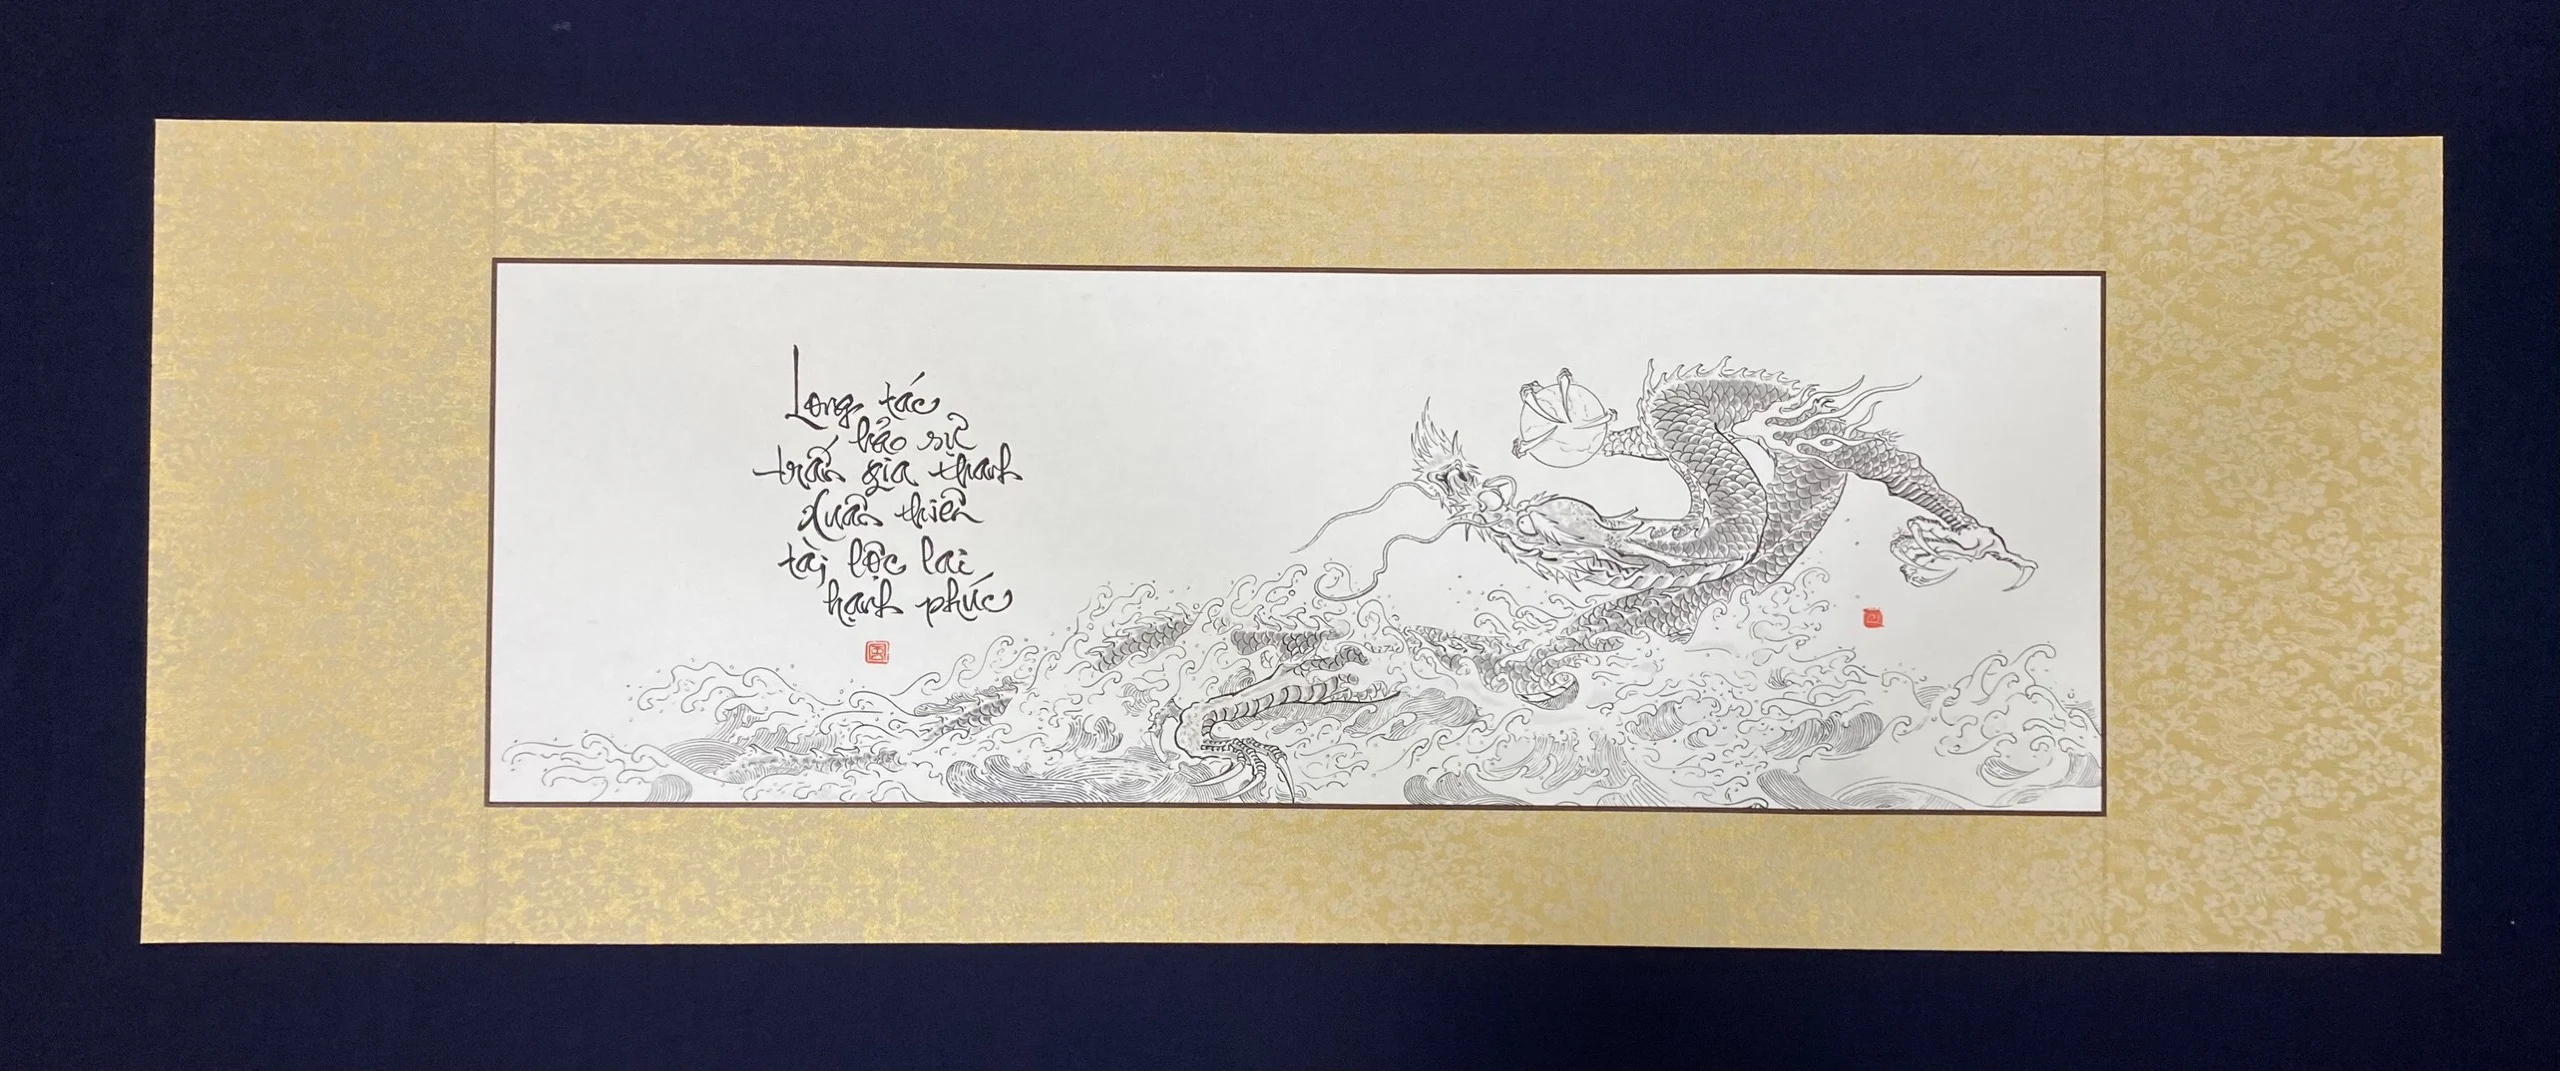 Long tác
hảo sự
trấn gia thanh
Xuân thiên
tài lộc lai
hạnh phúc